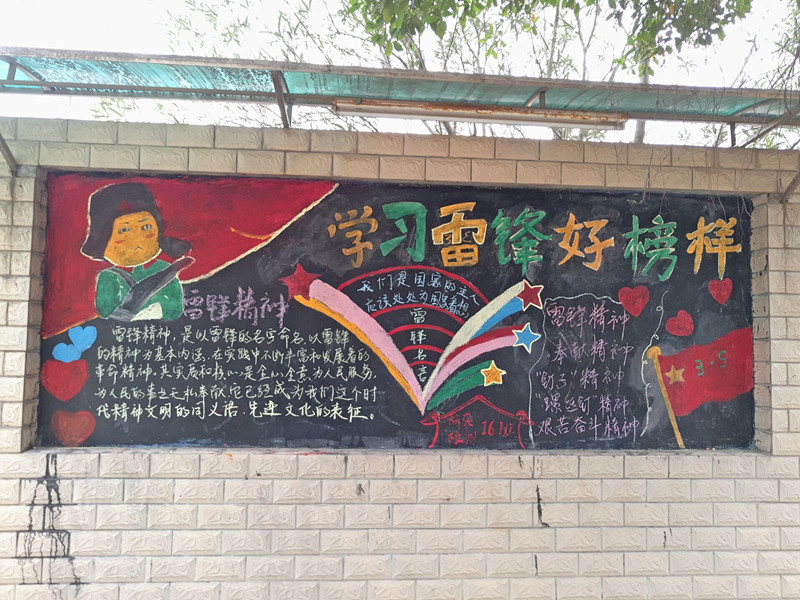 学习雷锋好榜样
雷锋精神
雷锋精神，是以雷锋的名字命名，以雷锋
的精神为基本内涵，在实践中不断丰富和发展着的
革命精神，其实质和核心是全心全意为人民服务，
为人民的事业无私奉献。它已经成为我们这个时
代精神文明的同义语、先进文化的表征。
我们是国家的主人
应该处处为国家着想
雷锋名言
16班
雷锋精神
奉献精神
"钉子"精神
"螺丝钉"精神
艰苦奋斗精神
3-5